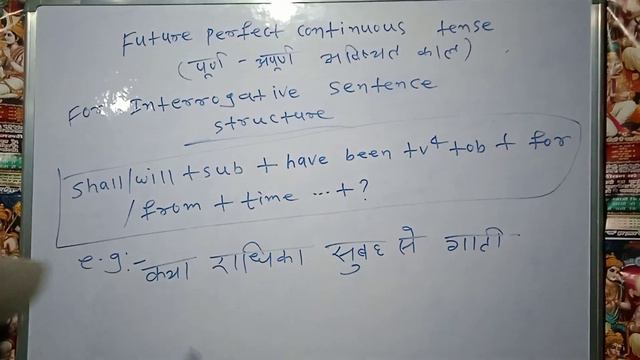 Future perfect continuous tense
(पूर्ण - अपूर्ण भविष्यत काल)
For Interrogative sentence
structure
Shall/will + sub + have been + v⁴ + ob + for
/from + time ... + ?
e.g:- क्या राधिका सुबह से गाती